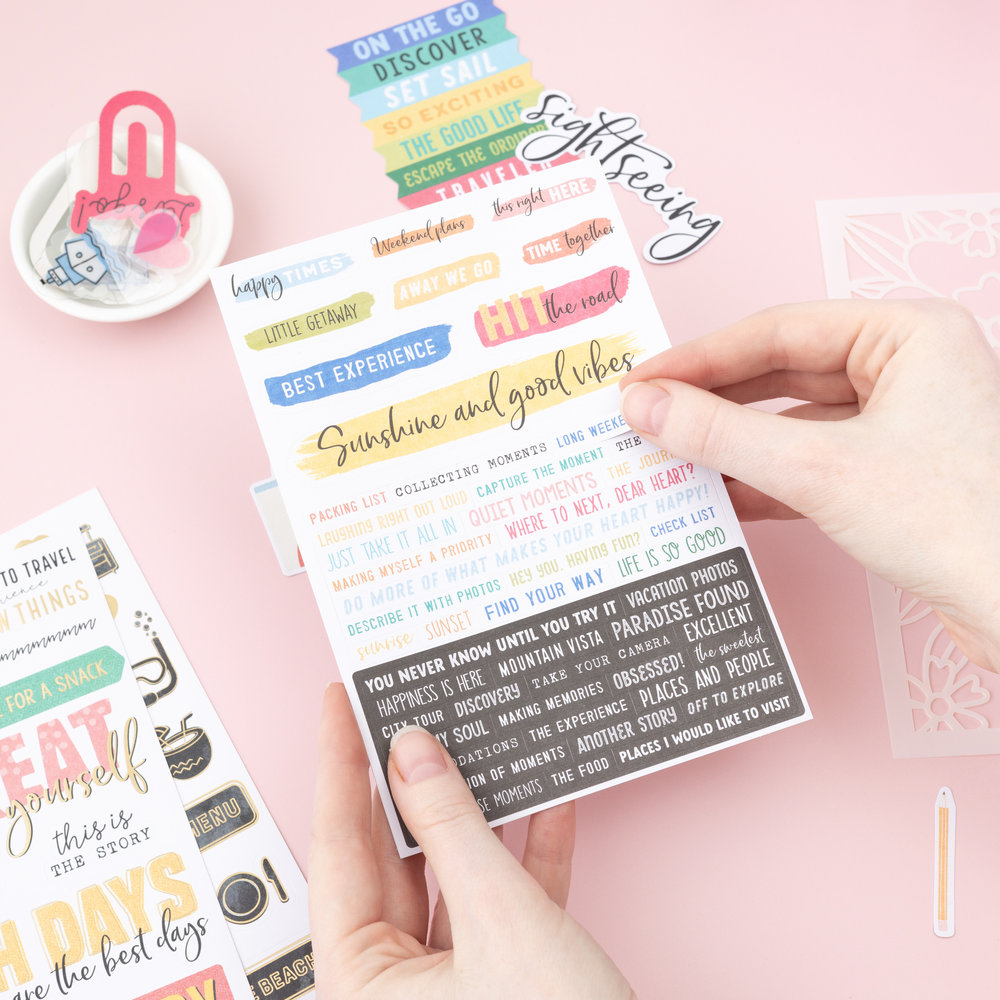 ON THE GO
DISCOVER
SET SAIL
SO EXCITING
THE GOOD LIFE
ESCAPE THE ORDINAR
TRAVELER
sightseeing
Let's go!
this right HERE
Weekend plans
TIME together
happy TIMES
AWAY WE GO
HIT the road
LITTLE GETAWAY
BEST EXPERIENCE
Sunshine and good vibes
PACKING LIST COLLECTING MOMENTS LONG WEEKE
LAUGHING RIGHT OUT LOUD CAPTURE THE MOMENT THE
JUST TAKE IT ALL IN QUIET MOMENTS THE JOURN
MAKING MYSELF A PRIORITY WHERE TO NEXT, DEAR HEART?
DO MORE OF WHAT MAKES YOUR HEART HAPPY!
DESCRIBE IT WITH PHOTOS HEY YOU, HAVING FUN? CHECK LIST
sunrise SUNSET FIND YOUR WAY LIFE IS SO GOOD
YOU NEVER KNOW UNTIL YOU TRY IT VACATION PHOTOS
HAPPINESS IS HERE MOUNTAIN VISTA PARADISE FOUND
CITY TOUR DISCOVERY TAKE YOUR CAMERA EXCELLENT
MY SOUL MAKING MEMORIES OBSESSED! the sweetest
ODATIONS THE EXPERIENCE PLACES AND PEOPLE
ION OF MOMENTS ANOTHER STORY OFF TO EXPLORE
SE MOMENTS THE FOOD PLACES I WOULD LIKE TO VISIT
TO TRAVEL
erience
W THINGS
mmmmmm
E FOR A SNACK
EAT
yourself
this is
THE STORY
H DAYS
are the best days
MENU
E BEACH